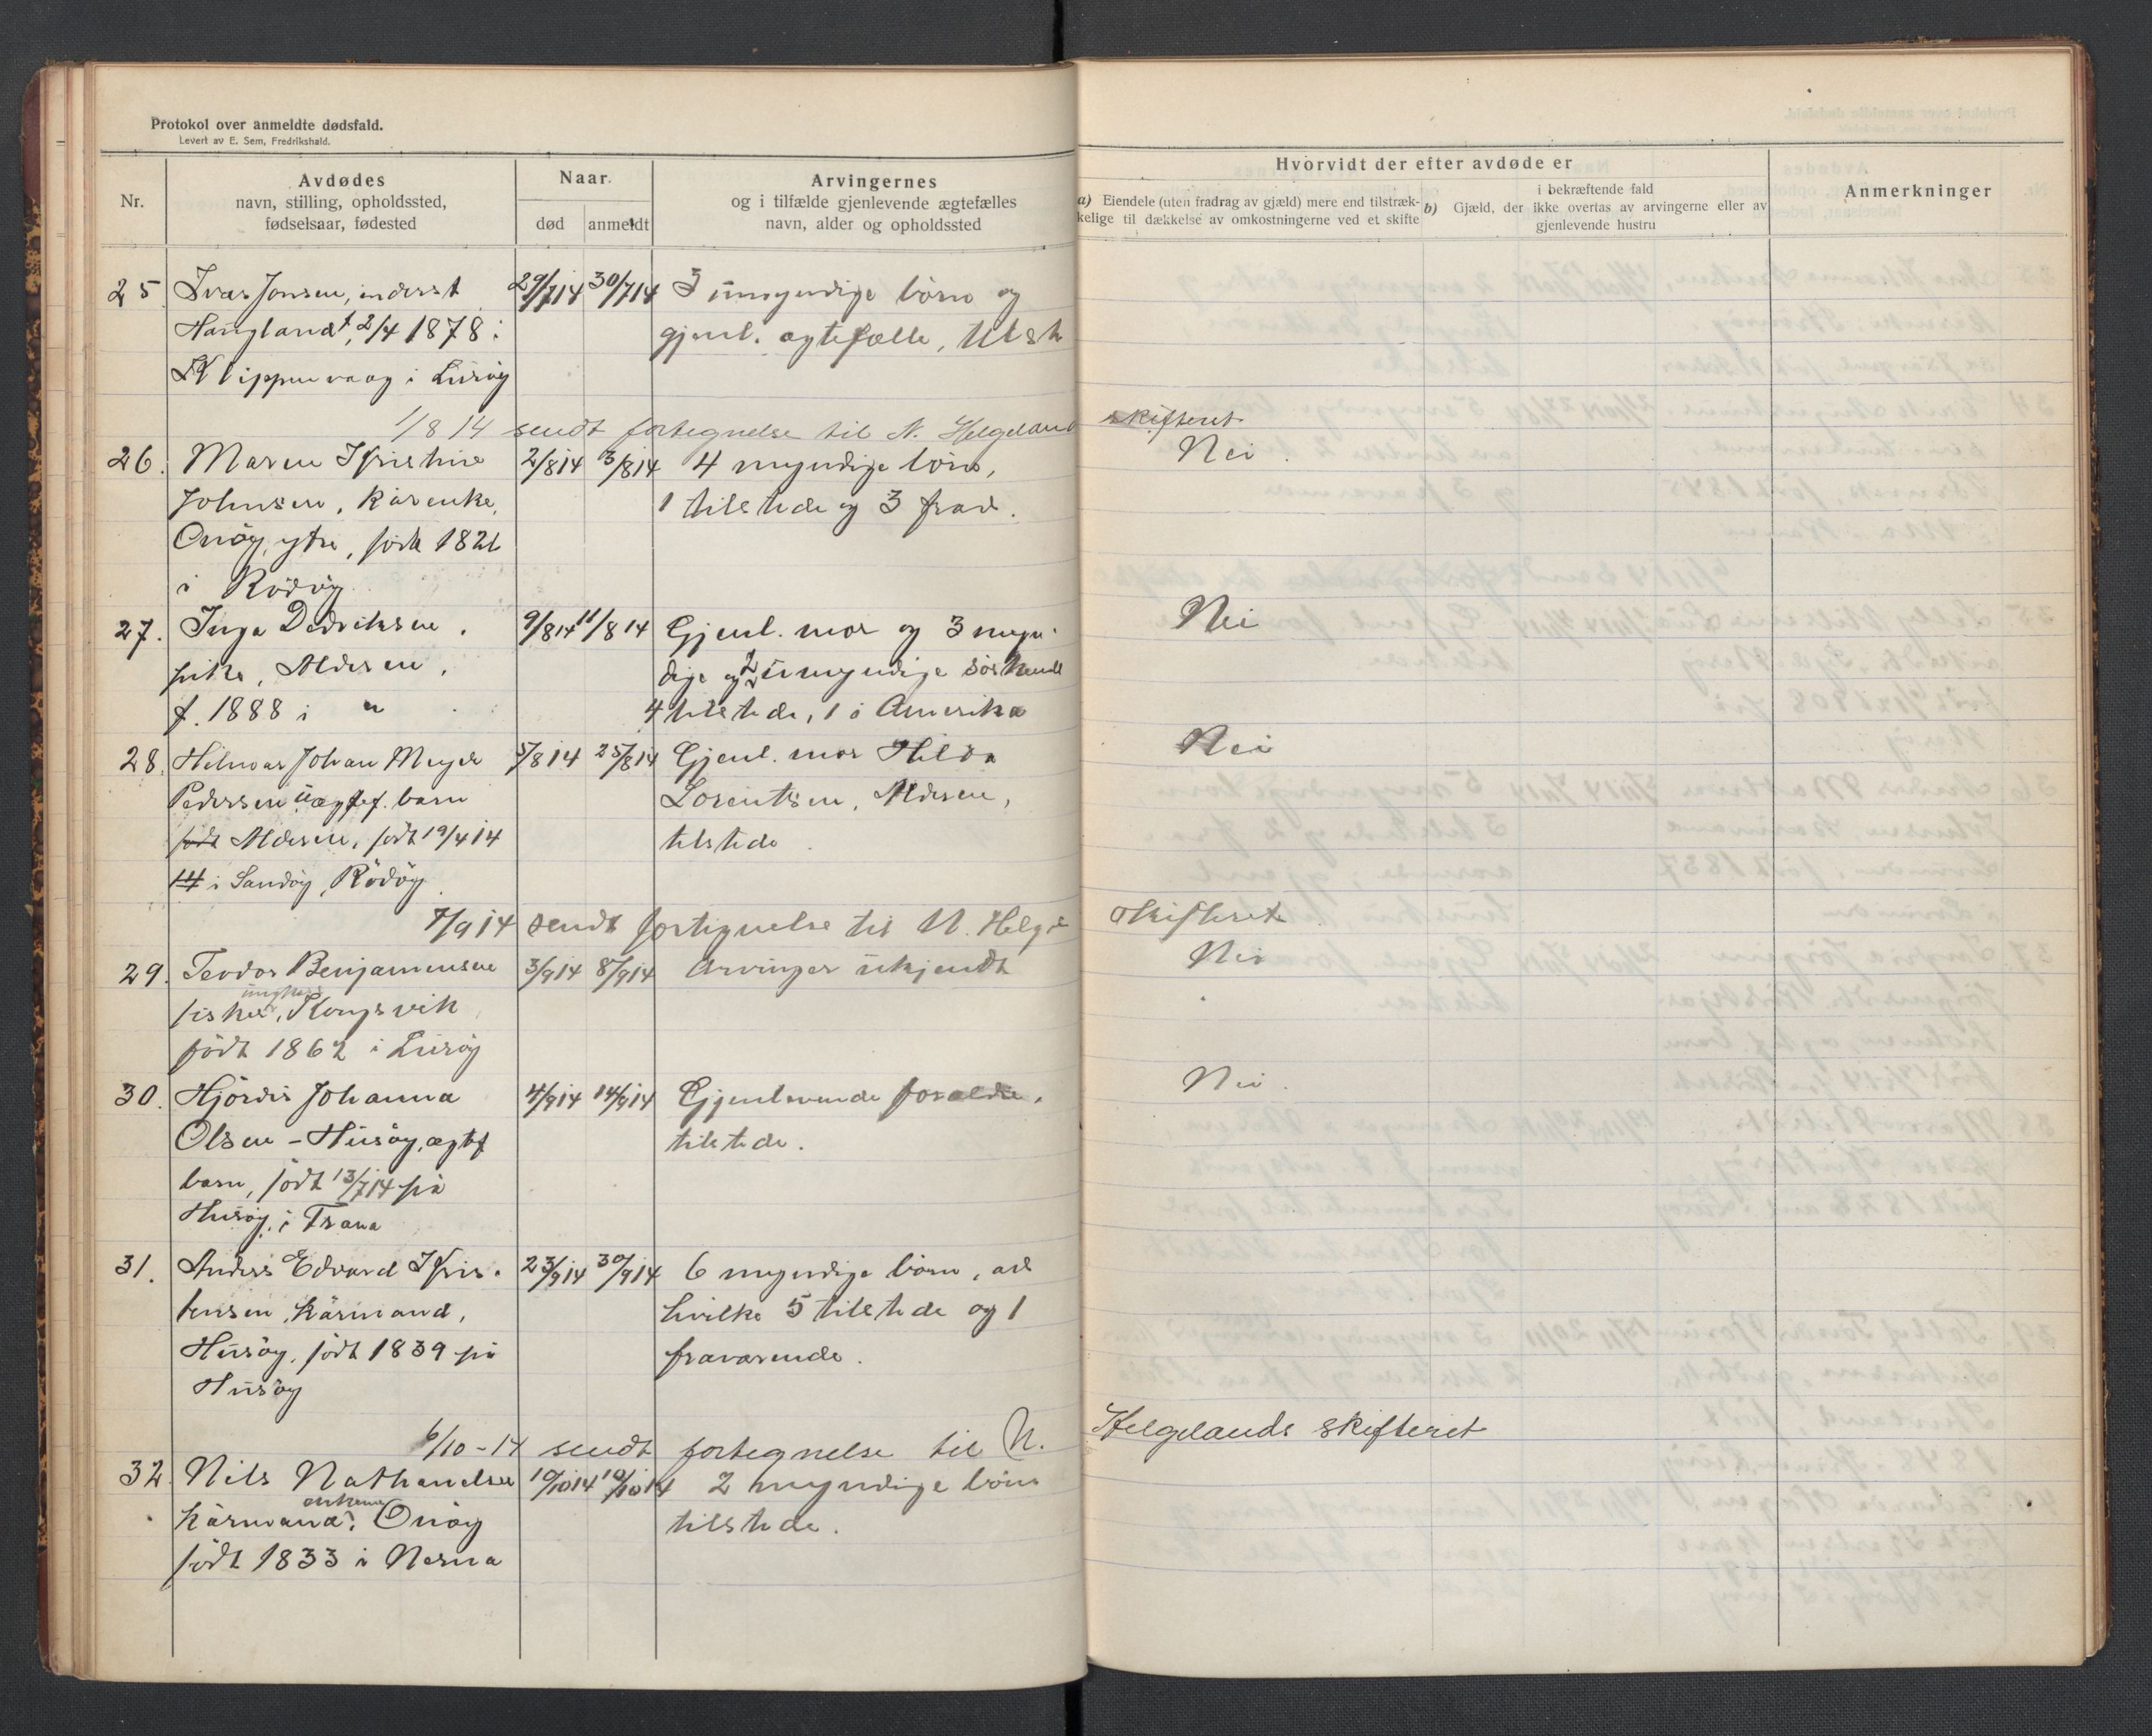 Protokol over anmeldte dødsfald.
Levert av E. Sem, Fredrikshald.
Nr.
Avdødes
navn, stilling, opholdssted,
fødselsaar, fødested
Naar
død
anmeldt
Arvingernes
og i tilfælde gjenlevende ægtefælles
navn, alder og opholdssted
Hvorvidt der efter avdøde er
a) Eiendele (uten fradrag av gjæld) mere end tilstræk-
kelige til dækkelse av omkostningerne ved et skifte
i bekræftende fald
b) Gjæld, der ikke overtas av arvingerne eller av
gjenlevende hustru
Anmerkninger
25 Ivar Jonsen, inderst 29/7 14 30/7 14 3 umyndige børn og
Haugland, 2/4 1878 i gjenl. ægtefælle, tilst
Klippenvaag i Lurøy
1/8 14 sendt fortegnelse til N. Helgeland skifteret
26. Maren Kristine 2/8 14 3/8 14 4 myndige børn, Nei
Johnsen, kårenke, 1 tilstede og 3 frav.
Onøy, ytre, født 182
i Rødøy
27. Inga Dedriksen, 9/8 14 11/8 14 Gjenl. mor og 3 myn- Nei
pike, Aldersen, dige og 2 umyndige søskende
f. 1888 i " 4 tilstede, 1 i Amerika
28. Hilmar Johan Meyer 5/8 14 25/8 14 Gjenl. mor Hilda Nei
Pedersen uægtef. barn Lorentsen, Aldersen,
født Aldersen, født 19/4 14 tilstede
14 i Sandøy, Rødøy
7/9 14 sendt fortegnelse til N. Helg. skifteret
29. Teodor Benjaminsen 3/9 14 8/9 14 Arvinger ukjendt Nei
ungkar
fisker, Kongsvik
født 1862 i Lurøy
30. Hjørdis Johanna 4/9 14 14/9 14 Gjenlevende forældre, Nei.
Olsen - Husøy, ægtef tilstede.
barn, født 13/7 14 på
Husøy, i Træna
31. Anders Edvard Kris- 23/9 14 30/9 14 6 myndige børn, av
tensen, kårmand, hvilke 5 tilstede og 1
Husøy, født 1839 på fraværende.
Husøy
6/10-14 sendt fortegnelse til N. Helgelands skifteret
32. Nils Nathanelsen 10/10 14 10/10 14 2 myndige børn
enkem
kårmand, Onøy tilstede.
født 1833 i Nesna